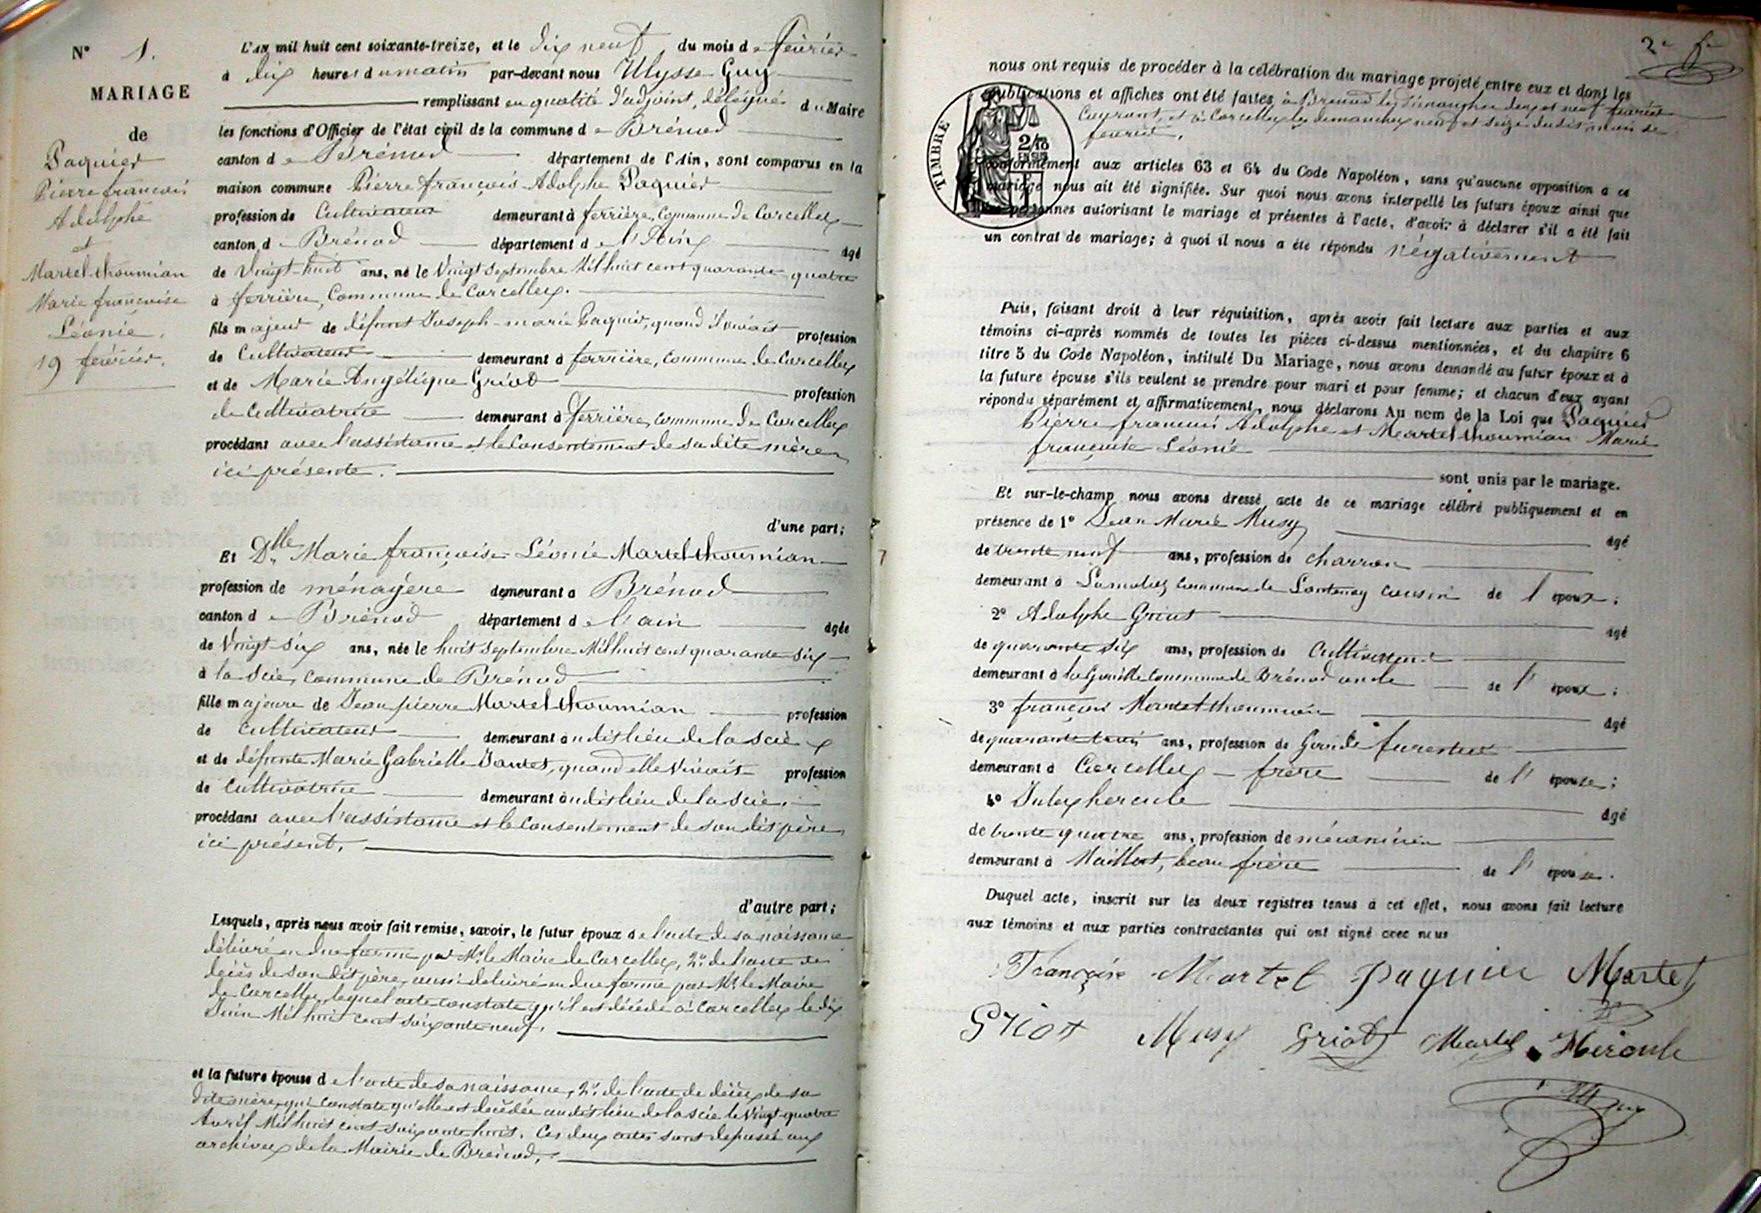 N° 1.
MARIAGE
de
Paquier
Pierre françois
Adolphe
et
Martel thoumian
Marie françoise
Léonie.
19 février.
L'AN mil huit cent soixante-treize, et le dix neuf du mois de février
à dix heures du matin par-devant nous Ulysse Guy
remplissant en qualité d'adjoint, délégué du Maire
les fonctions d'Officier de l'état civil de la commune de Brénod
canton de Brénod département de l'Ain, sont comparus en la
maison commune Pierre françois Adolphe Paquier
profession de Cultivateur demeurant à ferrière, Commune de Corcelles
canton de Brénod département de l'Ain âgé
de Vingt huit ans, né le Vingt septembre Mil huit cent quarante quatre
à ferrière, Commune de Corcelles.
fils majeur de défunt Joseph-marie Paquier, quand il vivait profession
de Cultivateur demeurant à ferrière, commune de Corcelles
et de Marie Angélique Griot profession
de Cultivatrice demeurant à ferrière, commune de Corcelles
procédant avec l'assistance et le Consentement de sa dite mère
ici présente.
d'une part;
Et Dlle Marie françoise Léonie Martel thoumian
profession de ménagère demeurant à Brénod
canton de Brénod département de l'ain âgée
de Vingt six ans, née le huit septembre Mil huit cent quarante six
à la Scie, commune de Brénod
fille majeure de Jean pierre Martel thoumian profession
de Cultivateur demeurant au dit lieu de la Scie
et de défunte Marie Gabrielle quand elle vivait profession
de Cultivatrice demeurant au dit lieu de la Scie.
procédant avec l'assistance et le Consentement de son dit père
ici présent.
d'autre part;
Lesquels, après nous avoir fait remise, savoir, le futur époux de l'acte de sa naissance
délivré en due forme par Mr le Maire de Corcelles, 2° de l'acte de
décès de son dit père, aussi délivré en due forme par Mr le Maire
de Corcelles, lequel acte constate qu'il est décédé à Corcelles le dix
Juin Mil huit cent soixante neuf.
et la future épouse de l'acte de sa naissance, 2° de l'acte de décès de sa
dite mère, qui constate qu'elle est décédée au dit lieu de la scie le Vingt quatre
Avril Mil huit cent soixante huit. Ces deux actes sont déposés aux
archives de la Mairie de Brénod.
nous ont requis de procéder à la célébration du mariage projeté entre eux et dont les
publications et affiches ont été faites à Brénod les dimanches deux et neuf février
Courant, et à Corcelles les dimanches neuf et seize du dit mois de
février.
TIMBRE
conformément aux articles 63 et 64 du Code Napoléon, sans qu'aucune opposition à ce
mariage nous ait été signifiée. Sur quoi nous avons interpellé les futurs époux ainsi que
les personnes autorisant le mariage et présentes à l'acte, d'avoir à déclarer s'il a été fait
un contrat de mariage; à quoi il nous a été répondu négativement
Puis, faisant droit à leur réquisition, après avoir fait lecture aux parties et aux
témoins ci-après nommés de toutes les pièces ci-dessus mentionnées, et du chapitre 6
titre 5 du Code Napoléon, intitulé Du Mariage, nous avons demandé au futur époux et à
la future épouse s'ils veulent se prendre pour mari et pour femme; et chacun d'eux ayant
répondu séparément et affirmativement, nous déclarons Au nom de la Loi que Paquier
Pierre françois Adolphe et Martel thoumian Marie
françoise Léonie
sont unis par le mariage.
Et sur-le-champ nous avons dressé acte de ce mariage célébré publiquement et en
présence de 1° Jean Marie Musy âgé
de trente neuf ans, profession de charron
demeurant à commune de Lantenay cousin de l'époux;
2° Adolphe Griot âgé
de quarante six ans, profession de Cultivateur
demeurant à la commune de Brénod oncle de l'époux;
3° françois Martel thoumian âgé
de quarante trois ans, profession de Garde forestier
demeurant à Corcelles frère de l'épouse;
4° Jules hercule âgé
de trente quatre ans, profession de mécanicien
demeurant à Maillat, beau frère de l'épouse.
Duquel acte, inscrit sur les deux registres tenus à cet effet, nous avons fait lecture
aux témoins et aux parties contractantes qui ont signé avec nous
Françoise Martel Paquier Martel
Griot Musy Griot Martel Hercule
Guy